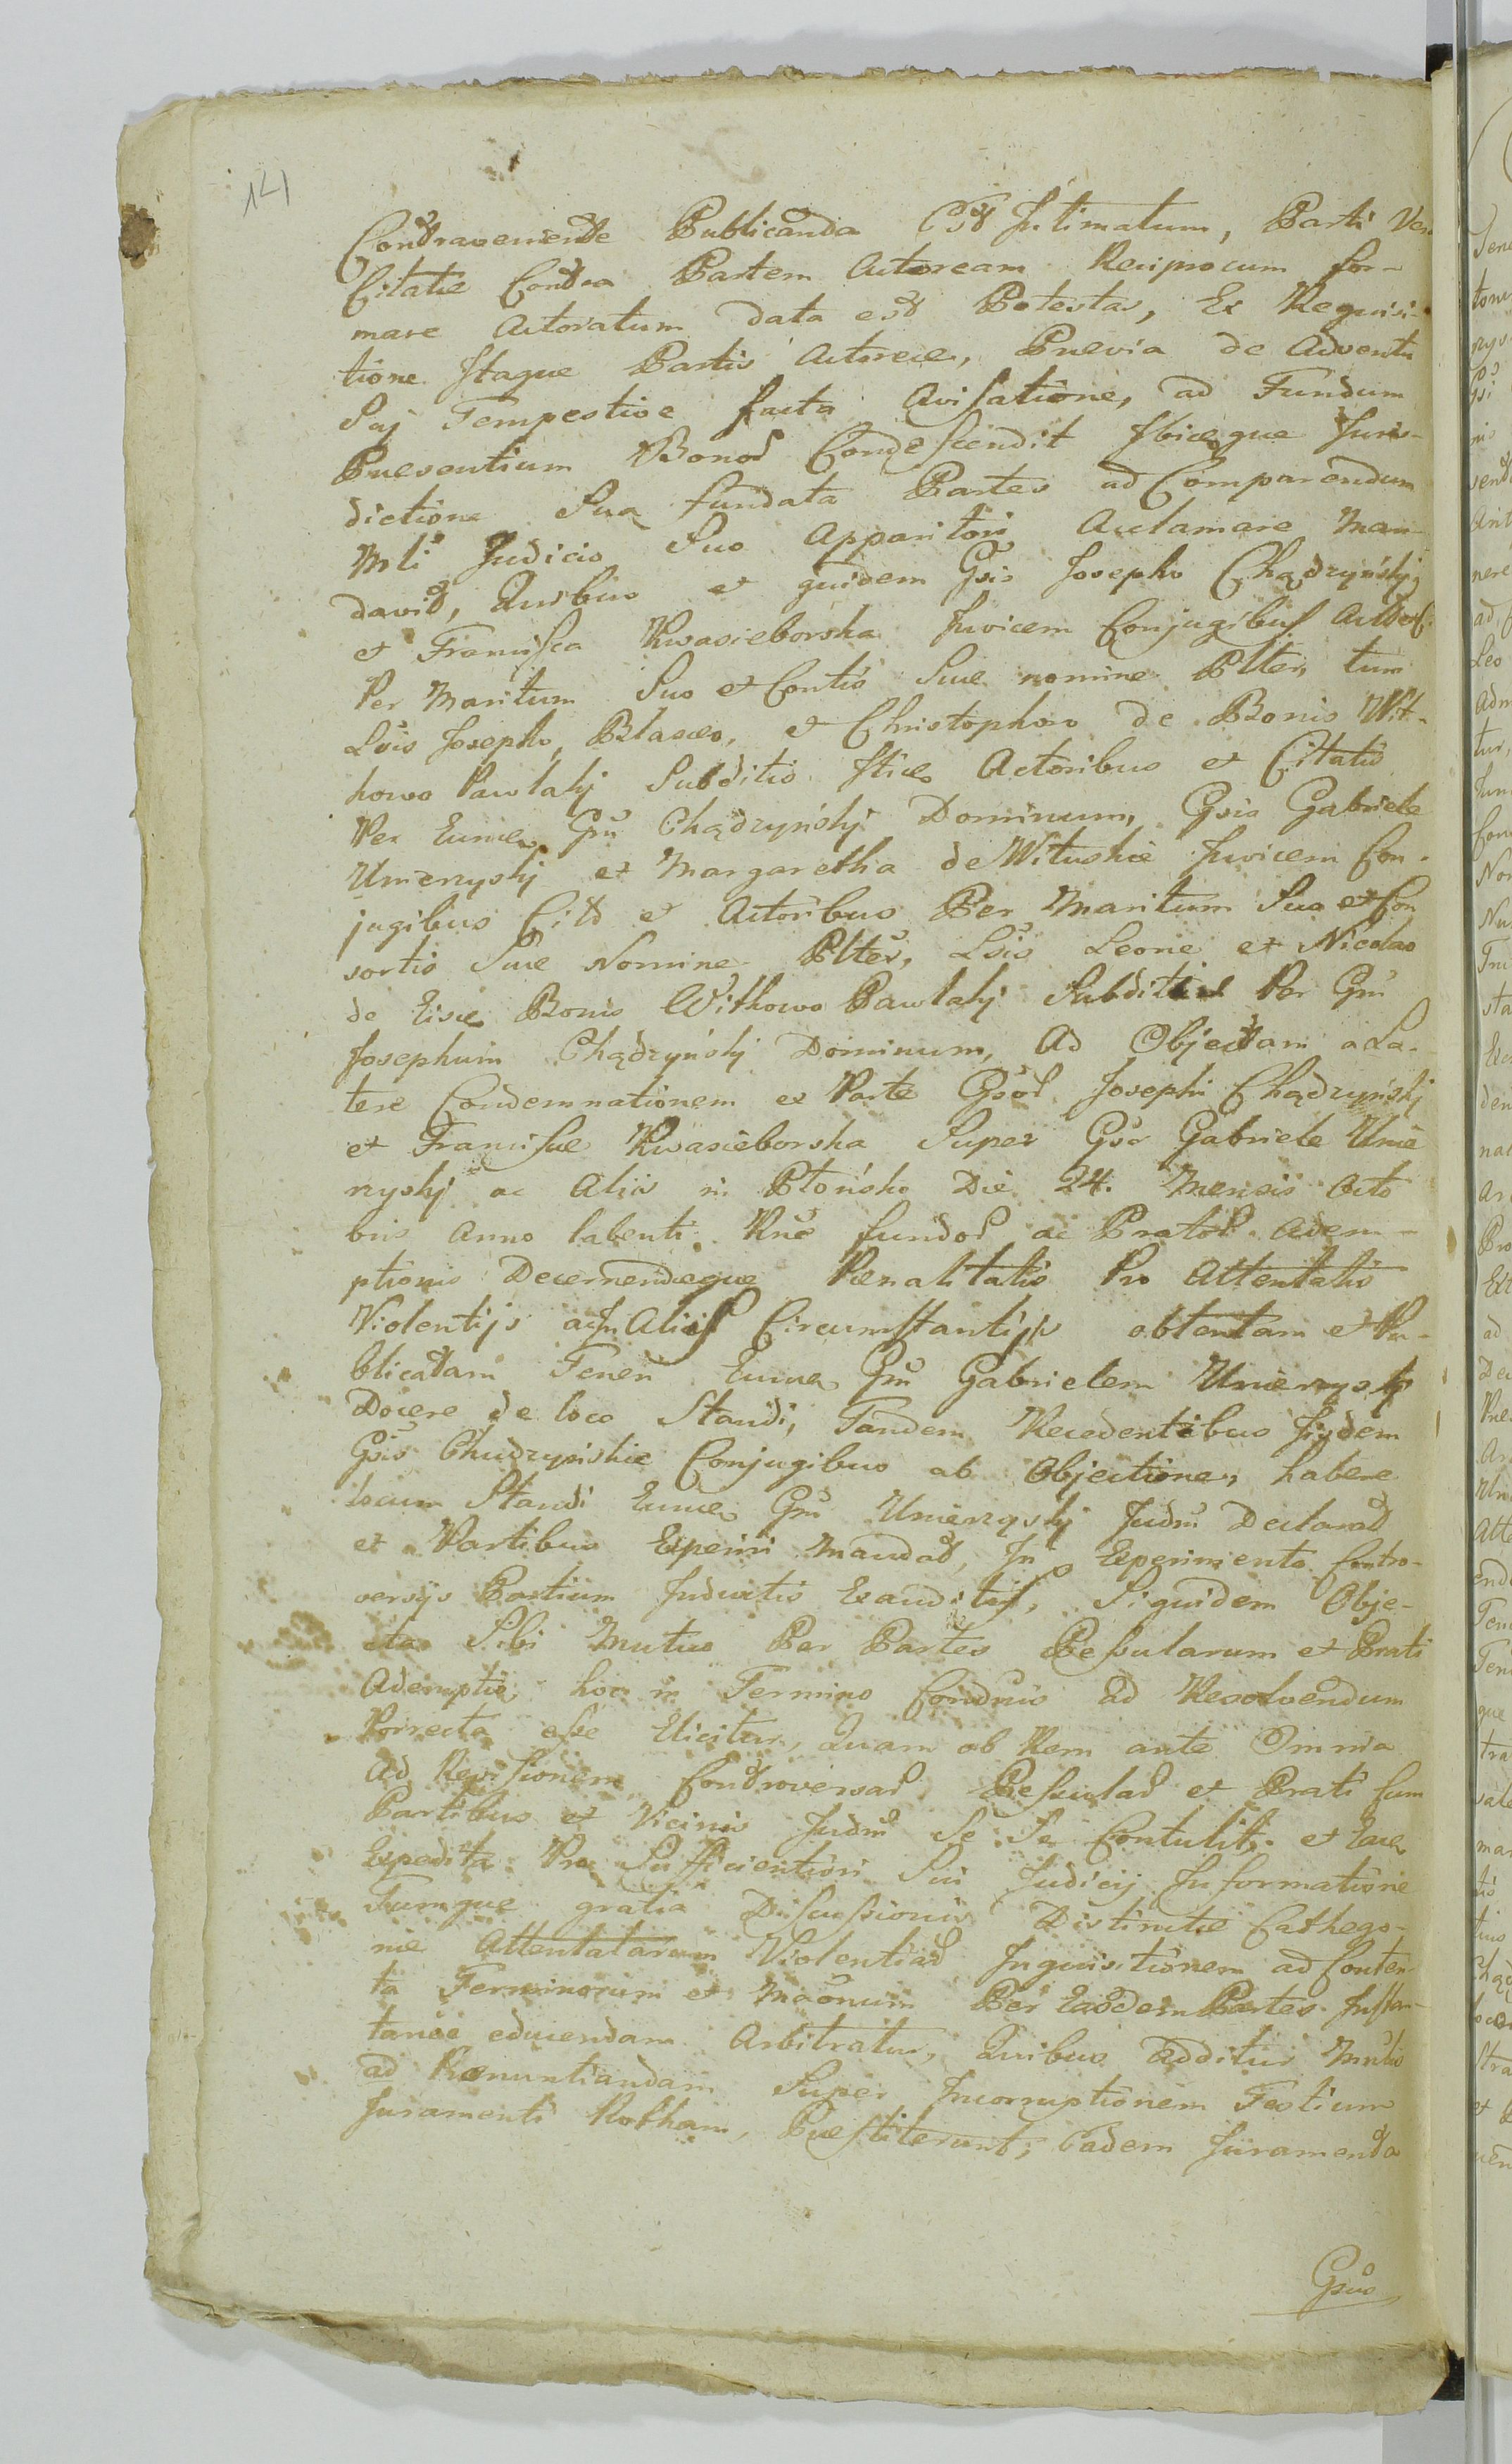 141
Contraveniente Publicanda Est Intimatum, Parti Vero
Citatæ Contra Partem Actoream Reciprocum for-
mare Actoratum data est Potestas, Ex Requisi-
tione Itaque Partis Actoreæ, Prævia de Adventu
Suj Tempestive facta Avisatione, ad Fundum
Præsentium Bonor Condescendit Ibiq̃ que Juris-
dictione Sua fundata Partes ad Comparendum
Mli Judicio Suo Apparitori Acclamare Man-
davit, Quibus et quidem Gsis Josepho Chądzyńskj
et Francisca Kwasieborska Invicem Conjugibus Act et Ci
Per Maritum Suo et Contis Suæ nomine Pltter, tum
Lsis Josepho, Blasco, et Christophoro de Bonis Wit-
kowo Pawlakj Subditis Iticq̃ Actoribus et Citatis
Per Eunde Gm Chądzyńskj Dominum, Gsis Gabriele
Umierzyskj et Margaretha de Wituskie Invicem Con-
jugibus Citt et Actoribus Per Maritum Suo et Con
sortis Suæ Nomine Pltter, Lsis Leone et Nicolao
de Eisdẽ Bonis Witkowo Pawlakj Subditis Per Gm
Josephum Chądzyńskj Dominum, Ad Objectam a La-
tere Condemnationem ex Parte Gsor Josephi Chądzyńskj
et Franciscæ Kwasieborska Super Gso Gabriele Umie
rzyskj ac Aliis in Płońsko Die 24. Mensis Octo
bris Anno labenti Rne fundor ac Prator Adem-
ptionis Decernendæque Pœnalitatis Pro Attentatis
Violentijs ac In Aliis Circumstantijs obtentam et Pu-
blicatam Teneri Eunde Gm Gabrielem Umierzyskj
Docere de loco Standi, Tandem Recedentibus Iisdem
Gsis Chądzyńskie Conjugibus ab Objectione, habere
locum Standi Eunde Gm Umierzyskj Judm Declarat
et Partibus Experiri Mandat, In Experimento Contro-
versijs Partium Inductis Exauditis, Siquidem Obje-
cta Sibi Mutuo Per Partes Pessularum et Prati
Ademptio hoc in Termino Condnis Ad Resolvendum
Porrecta esse Elicitur, Quam ob Rem ante Omnia
Ad Revisionem Controversar Pessular et Prati Cum
Partibus et Vicinis Judm Se Se Contulit et Eaq̃
Expedita Pro Sufficientiori Sui Judicij Informatione
Tumque gratia Discussionis Distinctæ Cathego-
riæ Attentatarum Violentiar Inquisitionem ad Conten
ta Terminorum et Maonum Per Easdem Partes Instan-
tanee educendam Arbitratur, Quibus additur Mntis
ad Pronuntiandam Super Incorruptionem Testium
Juramenti Rotham, Præstiterunt, Eadem Juramenta
Gsus